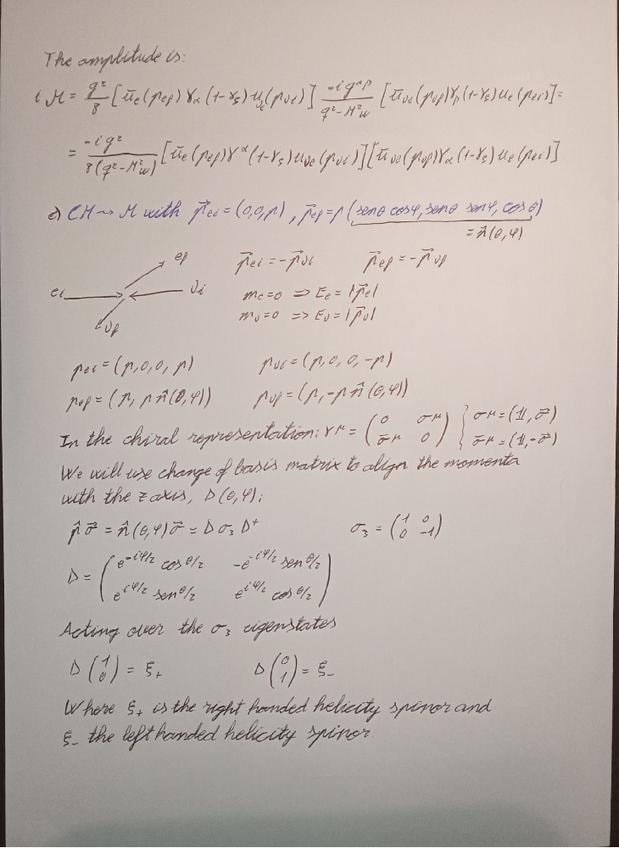 The amplitude is:
i M = g²/8 [ū_e(p_ef) γ_α (1-γ_5) u_νe(p_νi)] -i g^αβ/(q²-M²_W) [ū_νe(p_νf) γ_β (1-γ_5) u_e(p_ei)] =
= -i g²/(8(q²-M²_W)) [ū_e(p_ef) γ^α (1-γ_5) u_νe(p_νi)] [ū_νe(p_νf) γ_α (1-γ_5) u_e(p_ei)]
CM → M with p⃗_ei = (0,0,p), p⃗_ef = p (senθ cosφ, senθ senφ, cosθ)
= n̂(θ,φ)
e_f
e_i ν_i
ν_f
p⃗_ei = -p⃗_νi p⃗_ef = -p⃗_νf
m_e = 0 ⇒ E_e = |p⃗_e|
m_ν = 0 ⇒ E_ν = |p⃗_ν|
p_ei = (p, 0, 0, p) p_νi = (p, 0, 0, -p)
p_ef = (p, p n̂(θ,φ)) p_νf = (p, -p n̂(θ,φ))
In the chiral representation: γ^μ = (0 σ^μ; σ̄^μ 0) { σ^μ = (𝟙, σ⃗) σ̄^μ = (𝟙, -σ⃗)
We will use change of basis matrix to align the momenta
with the z axis, D(θ,φ):
p̂ σ⃗ = n̂(θ,φ) σ⃗ = D σ_3 D⁺ σ_3 = (1 0; 0 -1)
D = (e^{-iφ/2} cos θ/2 -e^{-iφ/2} sen θ/2; e^{iφ/2} sen θ/2 e^{iφ/2} cos θ/2)
Acting over the σ_3 eigenstates
D (1; 0) = ξ_+ D (0; 1) = ξ_-
Where ξ_+ is the right handed helicity spinor and
ξ_- the left handed helicity spinor.